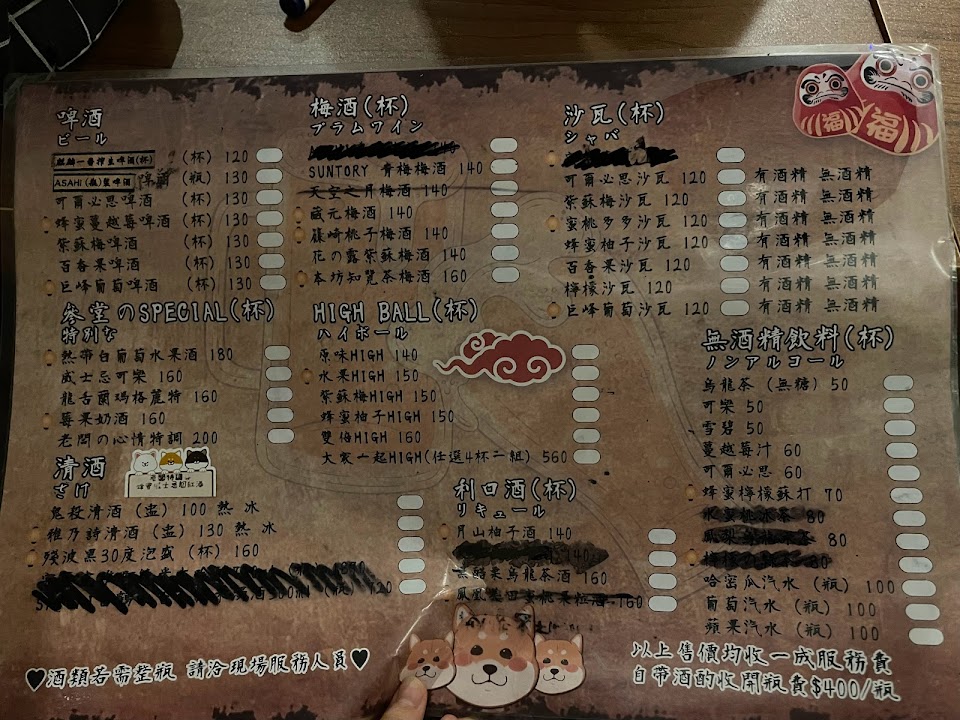 啤酒
ビール
麒麟一番搾生啤酒(杯) (杯) 120
ASAHI(瓶)製啤酒 啤酒 (瓶) 130
可爾必思啤酒 (杯) 130
蜂蜜蔓越莓啤酒 (杯) 130
紫蘇梅啤酒 (杯) 130
百香果啤酒 (杯) 130
巨峰葡萄啤酒 (杯) 130
參堂のSPECIAL(杯)
特別な
熱帶白葡萄水果酒 180
威士忌可樂 160
龍舌蘭瑪格麗特 160
莓果奶酒 160
老闆の心情特調 200
清酒
さけ
老闆特調
鬼殺清酒 (盅) 100 熱 冰
稚乃詩清酒 (盅) 130 熱 冰
殘波黑30度泡盛 (杯) 160
梅酒(杯)
プラムワイン
SUNTORY 青梅梅酒 140
天空之月梅酒 140
藏元梅酒 140
篠崎桃子梅酒 140
花の露紫蘇梅酒 140
本坊知覽茶梅酒 160
HIGH BALL(杯)
ハイボール
原味HIGH 140
水果HIGH 150
紫蘇梅HIGH 150
蜂蜜柚子HIGH 150
雙倍HIGH 160
大家一起HIGH(任選4杯一組) 560
利口酒(杯)
リキュール
月山柚子酒 140
黑醋栗烏龍茶酒 160
160
沙瓦(杯)
シャバ
可爾必思沙瓦 120 有酒精 無酒精
紫蘇梅沙瓦 120 有酒精 無酒精
蜜桃多多沙瓦 120 有酒精 無酒精
蜂蜜柚子沙瓦 120 有酒精 無酒精
百香果沙瓦 120 有酒精 無酒精
檸檬沙瓦 120 有酒精 無酒精
巨峰葡萄沙瓦 120 有酒精 無酒精
無酒精飲料(杯)
ノンアルコール
烏龍茶 (無糖) 50
可樂 50
雪碧 50
蔓越莓汁 60
可爾必思 60
蜂蜜檸檬蘇打 70
80
80
80
哈密瓜汽水 (瓶) 100
葡萄汽水 (瓶) 100
蘋果汽水 (瓶) 100
福
福
♥酒類若需整瓶 請洽現場服務人員♥
以上售價均收一成服務費
自帶酒酌收開瓶費$400/瓶